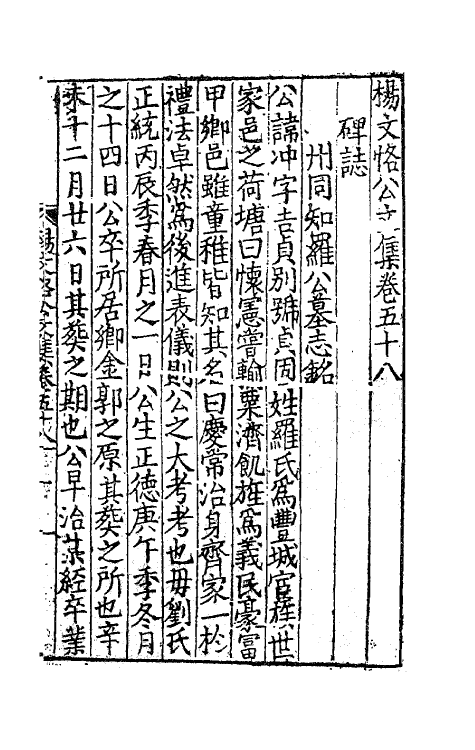 楊文恪公文集卷五十八
碑誌
州同知羅公墓志銘
公諱冲字吉貞別號貞固姓羅氏爲豐城官族世
家邑之荷塘曰懷憲嘗輸粟濟飢旌爲義民豪富
甲鄉邑雖童稚皆知其名曰慶常治身齊家一於
禮法卓然爲後進表儀則公之大考考也毋劉氏
正統丙辰季春月之一日公生正德庚午季冬月
之十四日公卒所居鄉金郭之原其葬之所也辛
未十二月廿六日其葬之期也公早治某經卒業
楊文恪公文集卷五十八